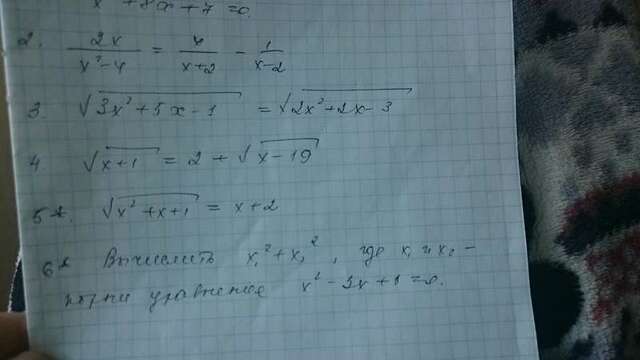 x² + 8x + 7 = 0.
2. 2x/(x²-4) = x/(x+2) - 1/(x-2)
3. √(3x²+5x-1) = √(2x²+2x-3)
4 √(x+1) = 2 + √(x-19)
5*. √(x²+x+1) = x+2
6* Вычислить x₁²+x₂², где x₁ и x₂ -
корни уравнения x² - 3x + 1 = 0.